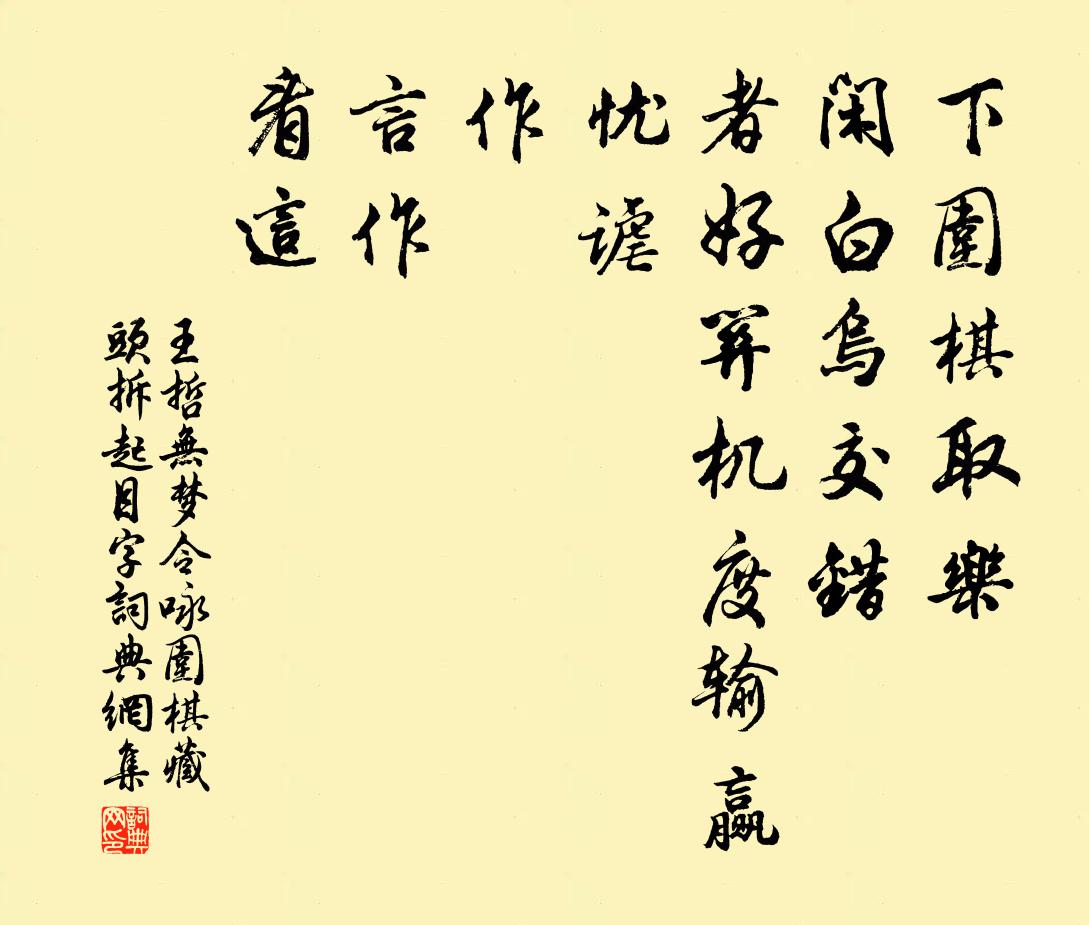 下圍棋取樂
閑白烏交錯
者好筭机度输赢
忧谑
作
言作
看這
王哲無梦令咏圍棋藏
頭拆起目字詞典網集
詞典网印